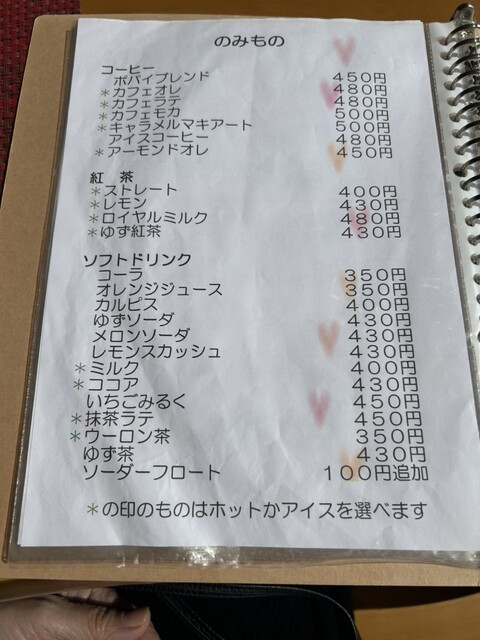 のみもの
コーヒー
ポパイブレンド 450円
*カフェオレ 480円
*カフェラテ 480円
*カフェモカ 500円
*キャラメルマキアート 500円
アイスコーヒー 480円
*アーモンドオレ 450円
紅 茶
*ストレート 400円
*レモン 430円
*ロイヤルミルク 480円
*ゆず紅茶 430円
ソフトドリンク
コーラ 350円
オレンジジュース 350円
カルピス 400円
ゆずソーダ 430円
メロンソーダ 430円
レモンスカッシュ 430円
*ミルク 400円
*ココア 430円
いちごみるく 450円
*抹茶ラテ 450円
*ウーロン茶 350円
ゆず茶 430円
ソーダーフロート 100円追加
*の印のものはホットかアイスを選べます